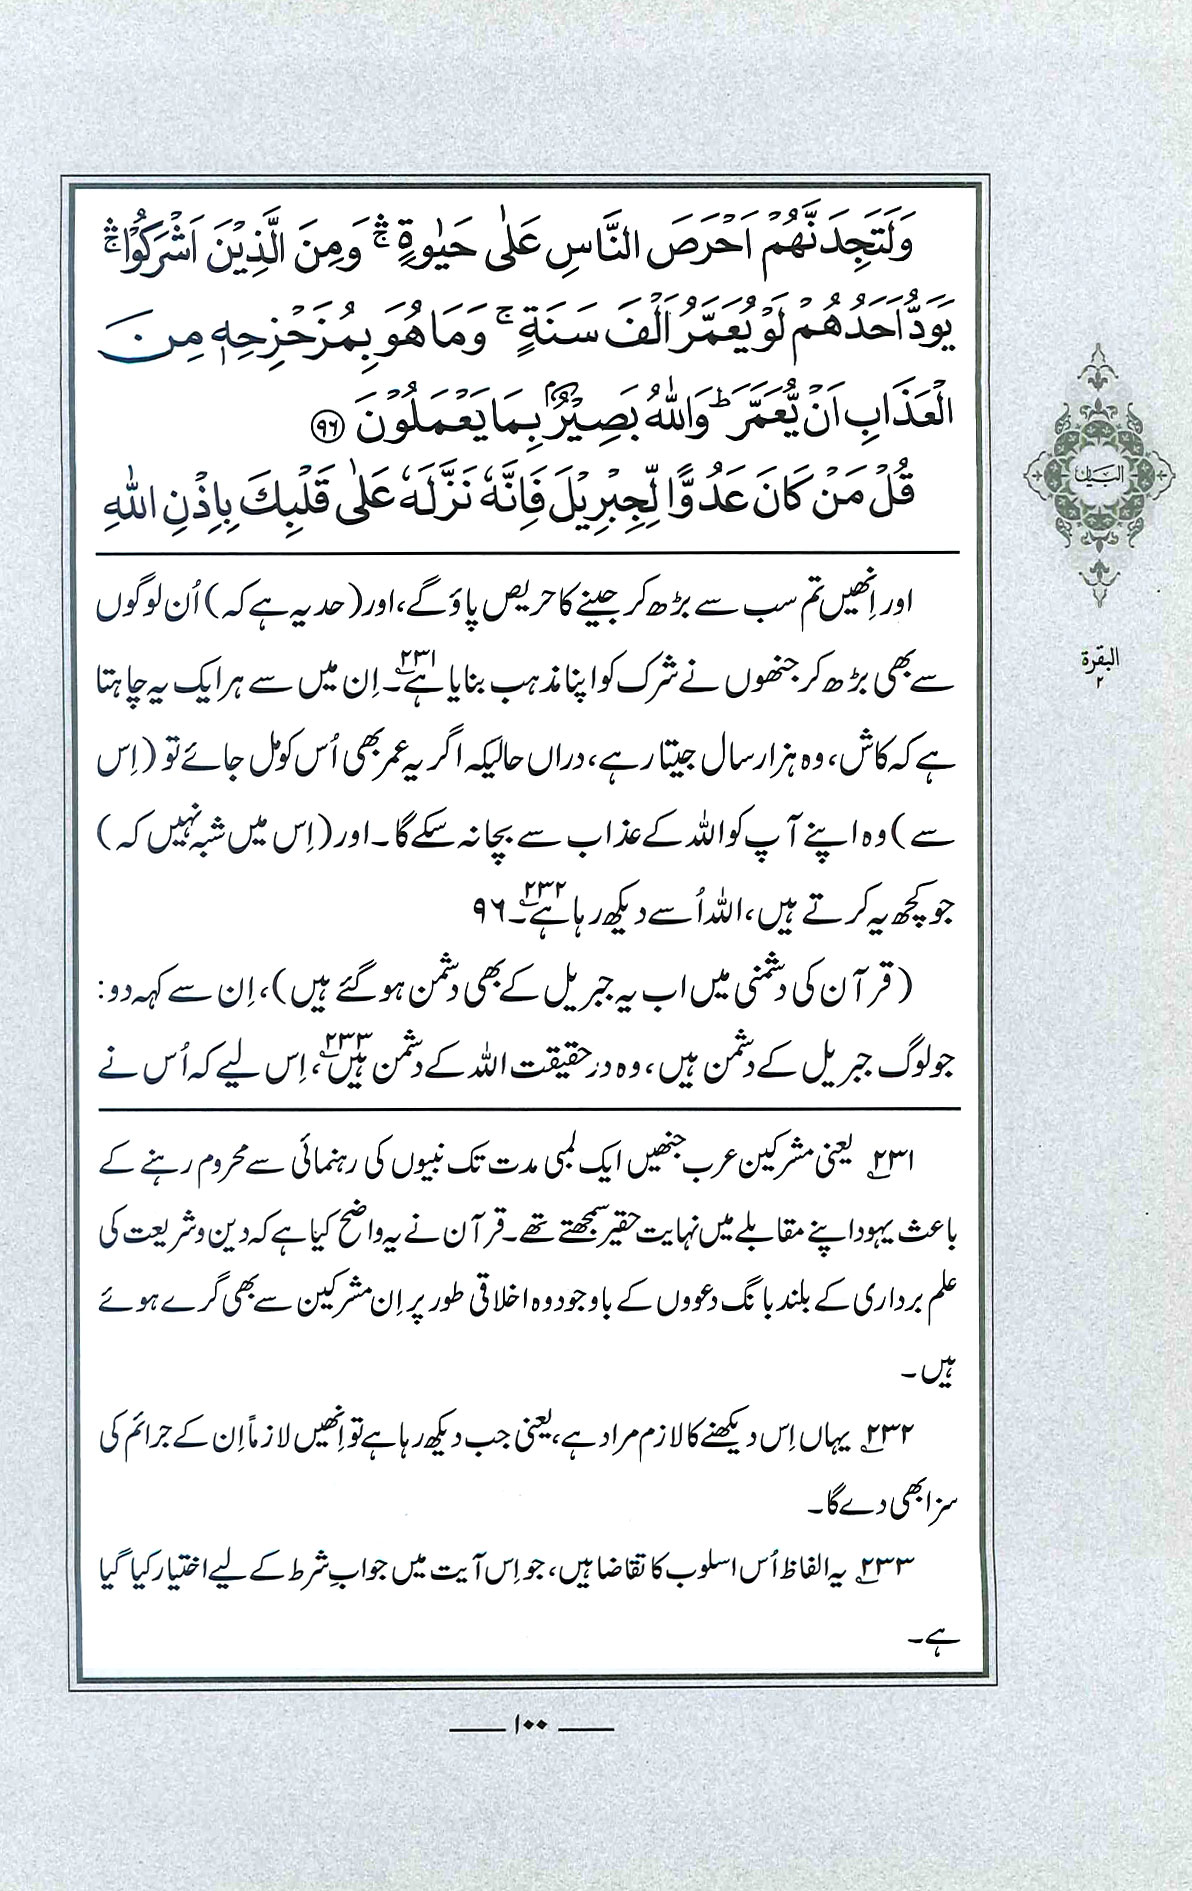 وَلَتَجِدَنَّهُمْ اَحْرَصَ النَّاسِ عَلٰی حَیٰوةٍ ۛۚ وَمِنَ الَّذِیْنَ اَشْرَکُوْا ۛۚ
یَوَدُّ اَحَدُهُمْ لَوْ یُعَمَّرُ اَلْفَ سَنَةٍ ۚ وَمَا هُوَ بِمُزَحْزِحِهٖ مِنَ
الْعَذَابِ اَنْ یُّعَمَّرَ ؕ وَاللّٰهُ بَصِیْرٌۢ بِمَا یَعْمَلُوْنَ ﴿۹۶﴾
قُلْ مَنْ کَانَ عَدُوًّا لِّجِبْرِیْلَ فَاِنَّهٗ نَزَّلَهٗ عَلٰی قَلْبِكَ بِاِذْنِ اللّٰهِ
اور اِنھیں تم سب سے بڑھ کر جینے کا حریص پاؤ گے، اور (حد یہ ہے کہ) اُن لوگوں
سے بھی بڑھ کر جنھوں نے شرک کو اپنا مذہب بنایا ہے۲۳۱۔ اِن میں سے ہر ایک یہ چاہتا
ہے کہ کاش، وہ ہزار سال جیتا رہے، دراں حالیکہ اگر یہ عمر بھی اُس کو مل جائے تو (اِس
سے) وہ اپنے آپ کو اللہ کے عذاب سے بچا نہ سکے گا۔ اور (اِس میں شبہ نہیں کہ)
جو کچھ یہ کرتے ہیں، اللہ اُسے دیکھ رہا ہے۲۳۲۔ ۹۶
(قرآن کی دشمنی میں اب یہ جبریل کے بھی دشمن ہو گئے ہیں)، اِن سے کہہ دو:
جو لوگ جبریل کے دشمن ہیں، وہ در حقیقت اللہ کے دشمن ہیں۲۳۳، اِس لیے کہ اُس نے
۲۳۱ یعنی مشرکین عرب جنھیں ایک لمبی مدت تک نبیوں کی رہنمائی سے محروم رہنے کے
باعث یہود اپنے مقابلے میں نہایت حقیر سمجھتے تھے۔ قرآن نے یہ واضح کیا ہے کہ دین و شریعت کی
علم برداری کے بلند بانگ دعووں کے باوجود وہ اخلاقی طور پر اِن مشرکین سے بھی گرے ہوئے
ہیں۔
۲۳۲ یہاں اِس دیکھنے کا لازم مراد ہے، یعنی جب دیکھ رہا ہے تو اِنھیں لازماً اِن کے جرائم کی
سزا بھی دے گا۔
۲۳۳ یہ الفاظ اُس اسلوب کا تقاضا ہیں، جو اِس آیت میں جوابِ شرط کے لیے اختیار کیا گیا
ہے۔
البیان
البقرة
۲
۱۰۰